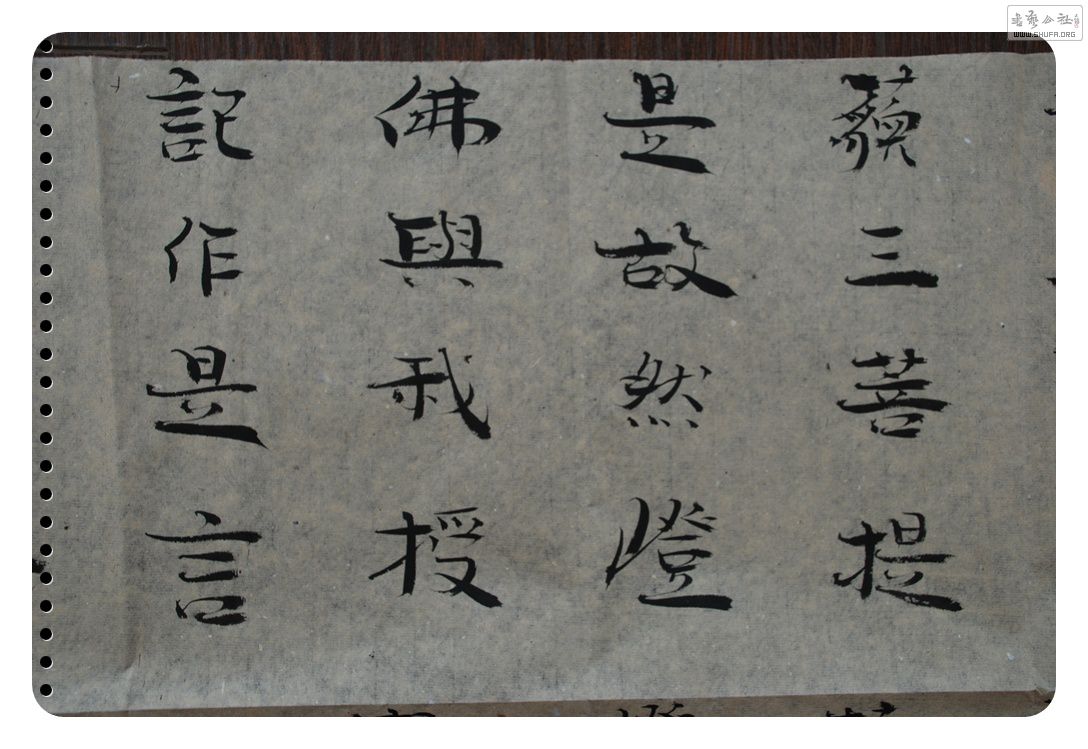 藐三菩提
是故然燈
佛與我授
記作是言
书艺公社
WWW.SHUFA.ORG